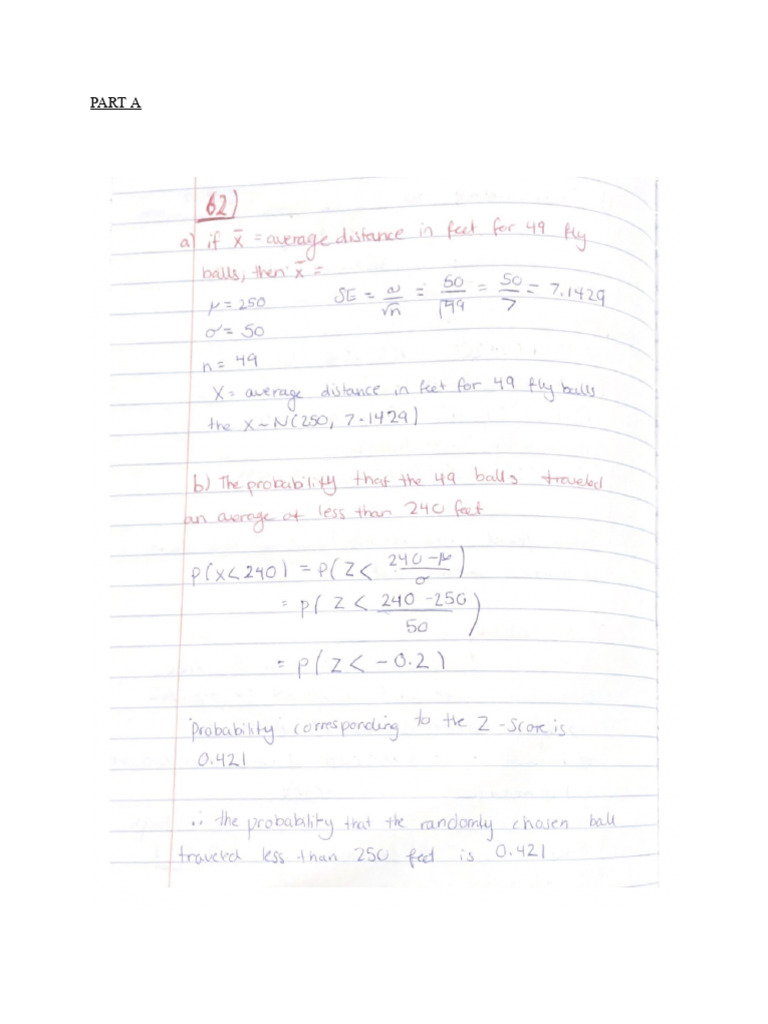 PART A
62)
a) if x̄ = average distance in feet for 49 fly
balls, then x̄ =
μ = 250 SE = σ/√n = 50/√49 = 50/7 = 7.1429
σ = 50
n = 49
X = average distance in feet for 49 fly balls
the X ~ N(250, 7.1429)
b) The probability that the 49 balls traveled
an average of less than 240 feet
P(X < 240) = P(Z < (240 - μ)/σ)
= P(Z < (240 - 250)/50)
= P(Z < -0.2)
Probability corresponding to the Z-score is
0.421
∴ the probability that the randomly chosen ball
traveled less than 250 feet is 0.421